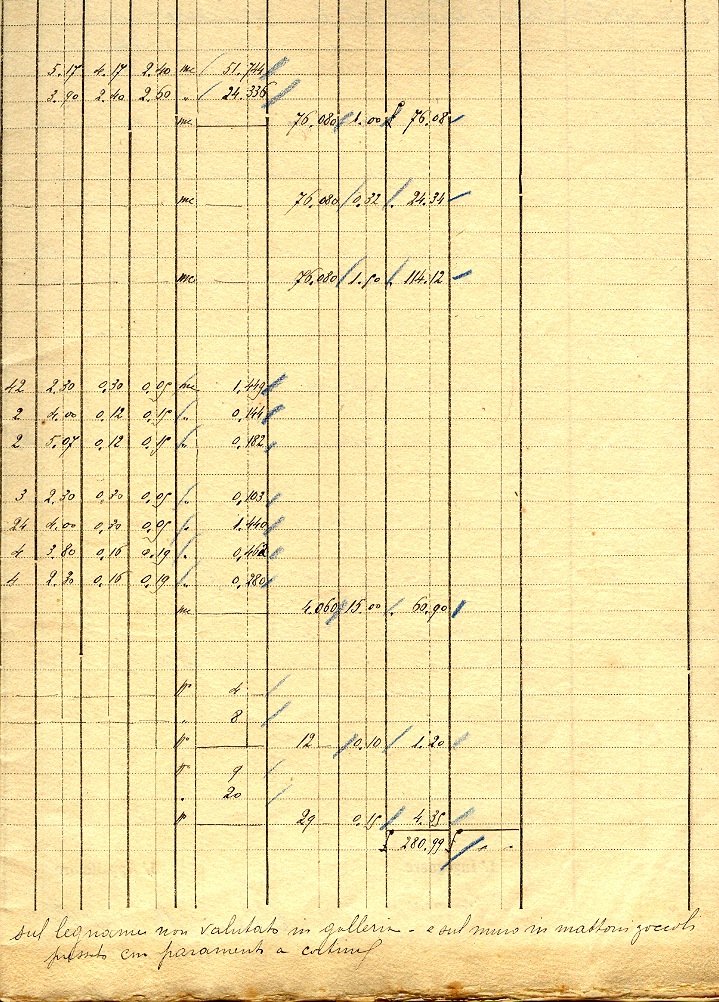 5.17 4.17 2.40 mc 51.744
3.90 2.40 2.60 " 24.336
mc 76.080 1.00 £ 76.08
mc 76.080 0.32 . 24.34
mc 76.080 1.50 . 114.12
42 2.30 0.30 0.05 mc 1.449
2 4.00 0.12 0.15 " 0.144
2 5.07 0.12 0.15 " 0.182
3 2.30 0.30 0.05 " 0.103
24 4.00 0.30 0.05 " 1.440
4 3.80 0.16 0.19 " 0.462
4 2.30 0.16 0.19 " 0.280
mc 4.060 15.00 . 60.90
4
" 8
12 0.10 1.20
9
" 20
29 0.15 4.35
£ 280.99
sul legname non valutato in galleria - e sul muro in mattoni zoccoli
con paramento a cortine